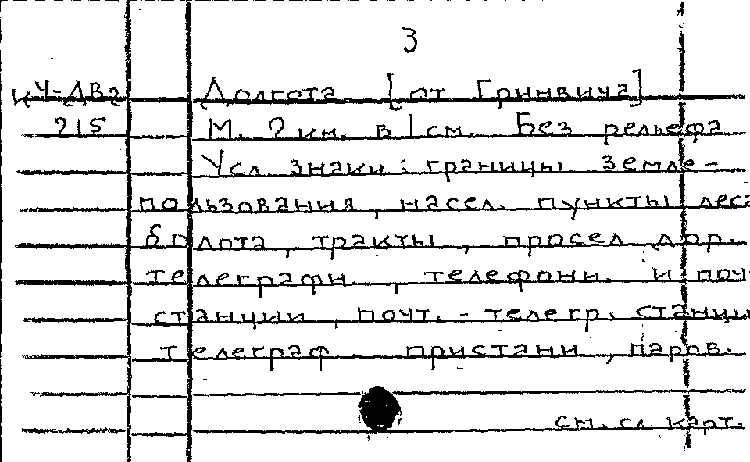 3
К4-ДВ2 Долгота [от Гринвича]
215 М. 2 км. в 1 см. Без рельефа
Усл. знаки: границы земле-
пользования, насел. пункты леса
болота, тракты, просел дор.
телеграфн., телефонн. и почт
станции, почт.-телегр. станции
телеграф пристани, паров.
см. сл карт.